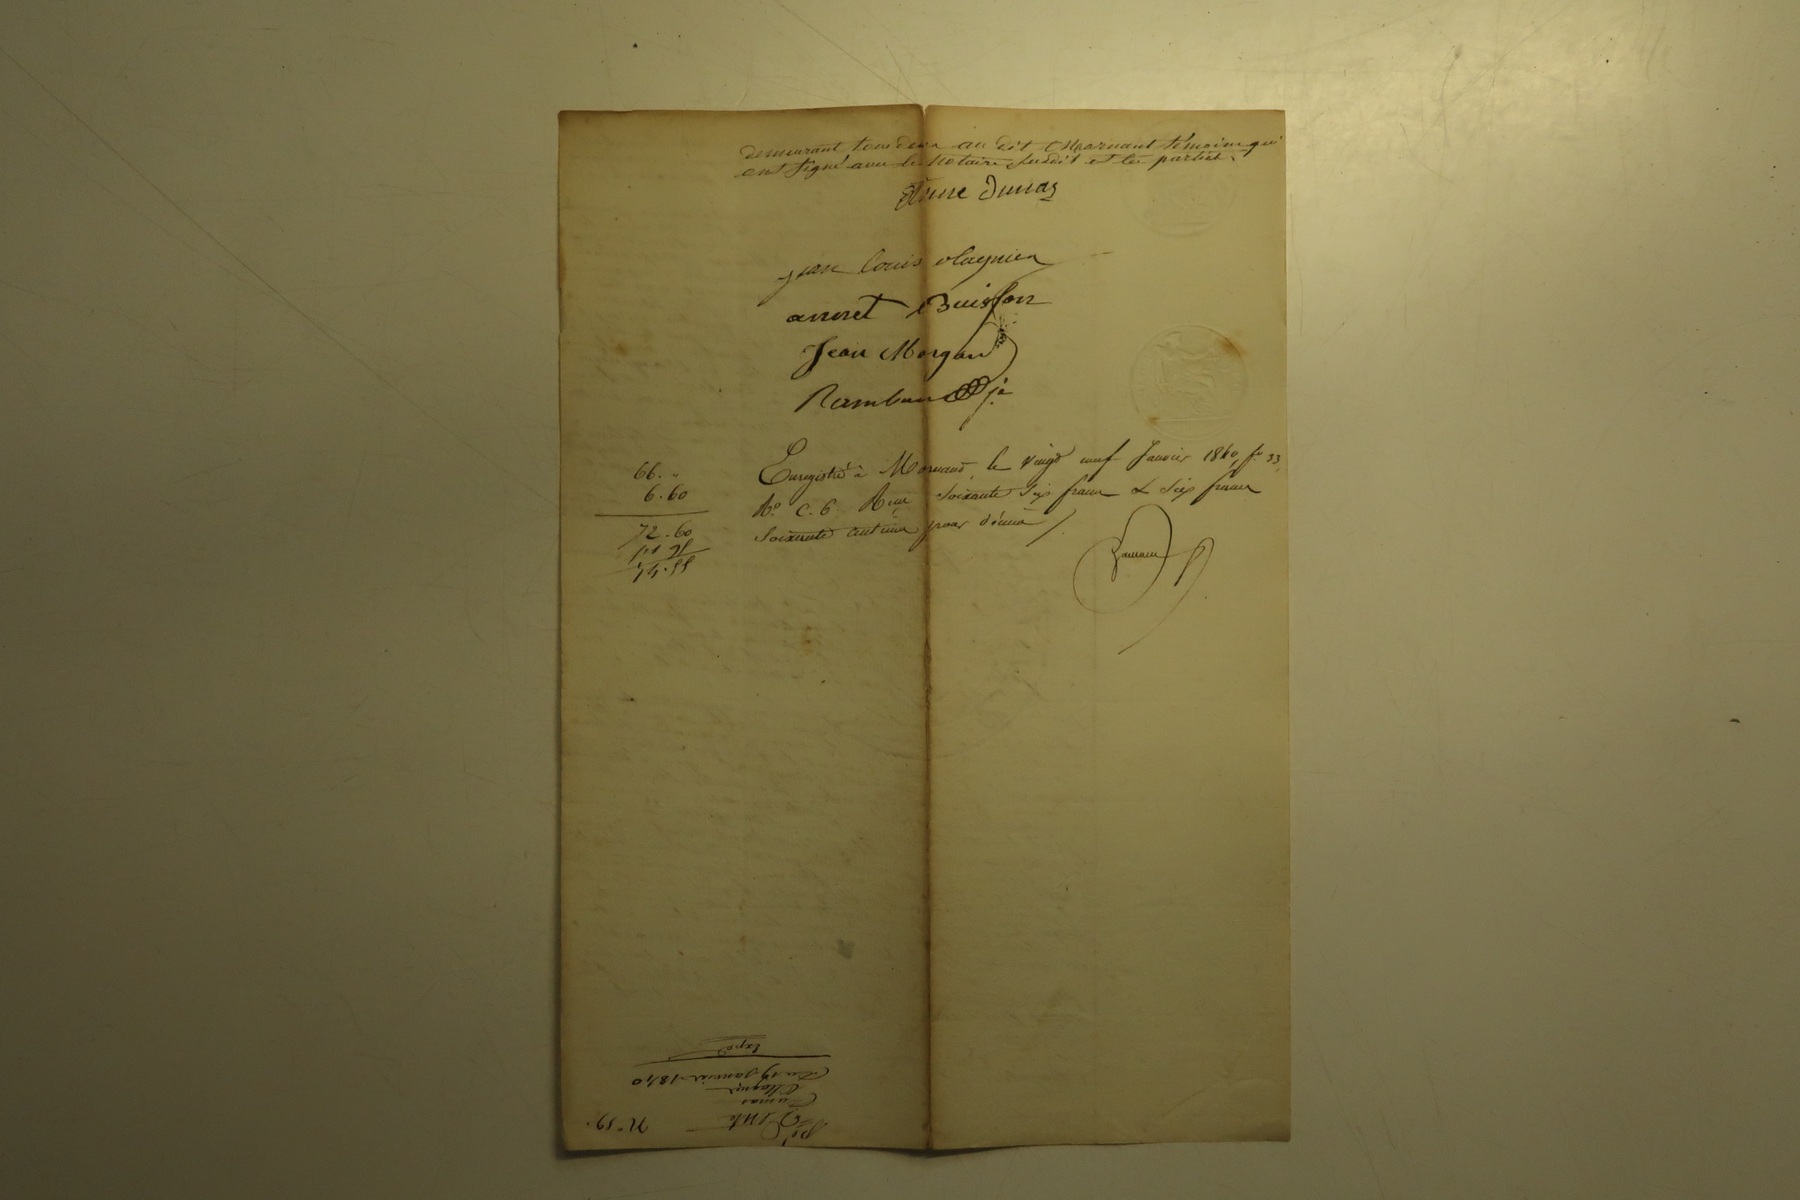 demeurant tous deux au dit Mornant témoins qui
ont signé avec le Notaire susdit et les parties.
Etienne Dumas
jean louis Magnien
annet Buisson
Jean Morgan
Rambau je
66. "
6. 60
72. 60
Enregistré à Mornant, le vingt neuf Janvier 1840, fo 33,
Ro C. 6. Reçu soixante six francs & six francs
soixante centimes pour décime
No 59.
Dumas
Du 19 Janvier 1840
Expé